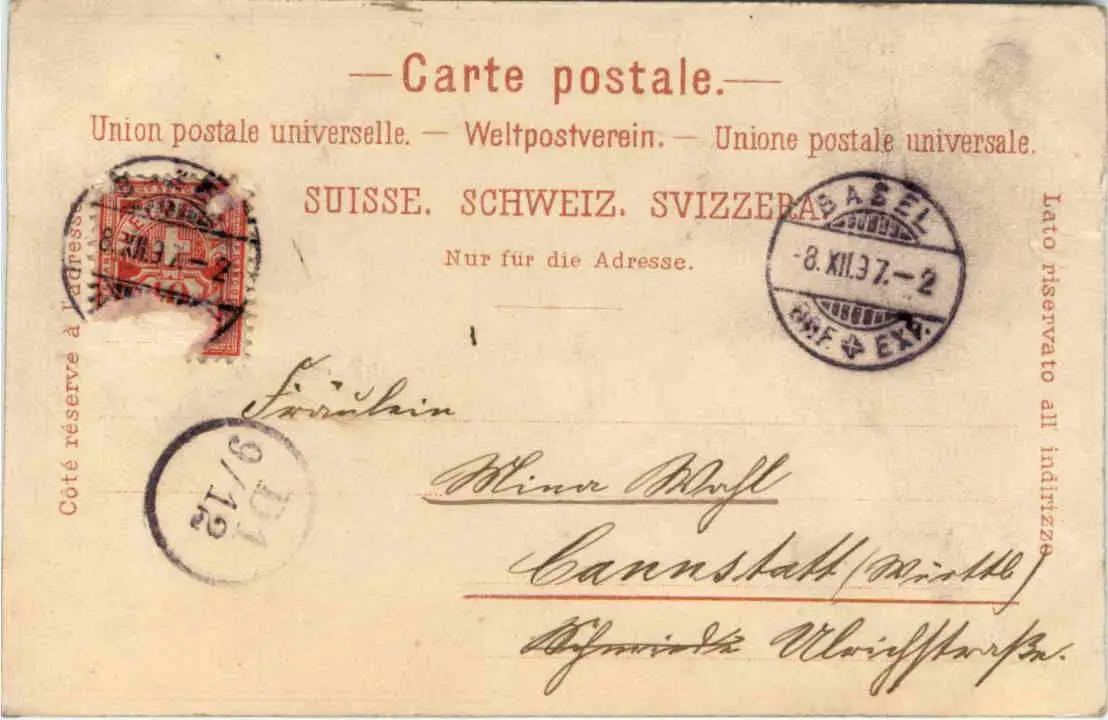 Carte postale.
Union postale universelle. — Weltpostverein. — Unione postale universale.
SUISSE. SCHWEIZ. SVIZZERA.
Nur für die Adresse.
Côté réservé à l'adresse
Lato riservato all indirizzo
10
-8.XII.97.-2
BASEL
-8.XII.97.-2
BRF. EXP.
Fräulein
Mina Wahl
Cannstatt (Württb)
Ulrichstraße.
D1
9/12